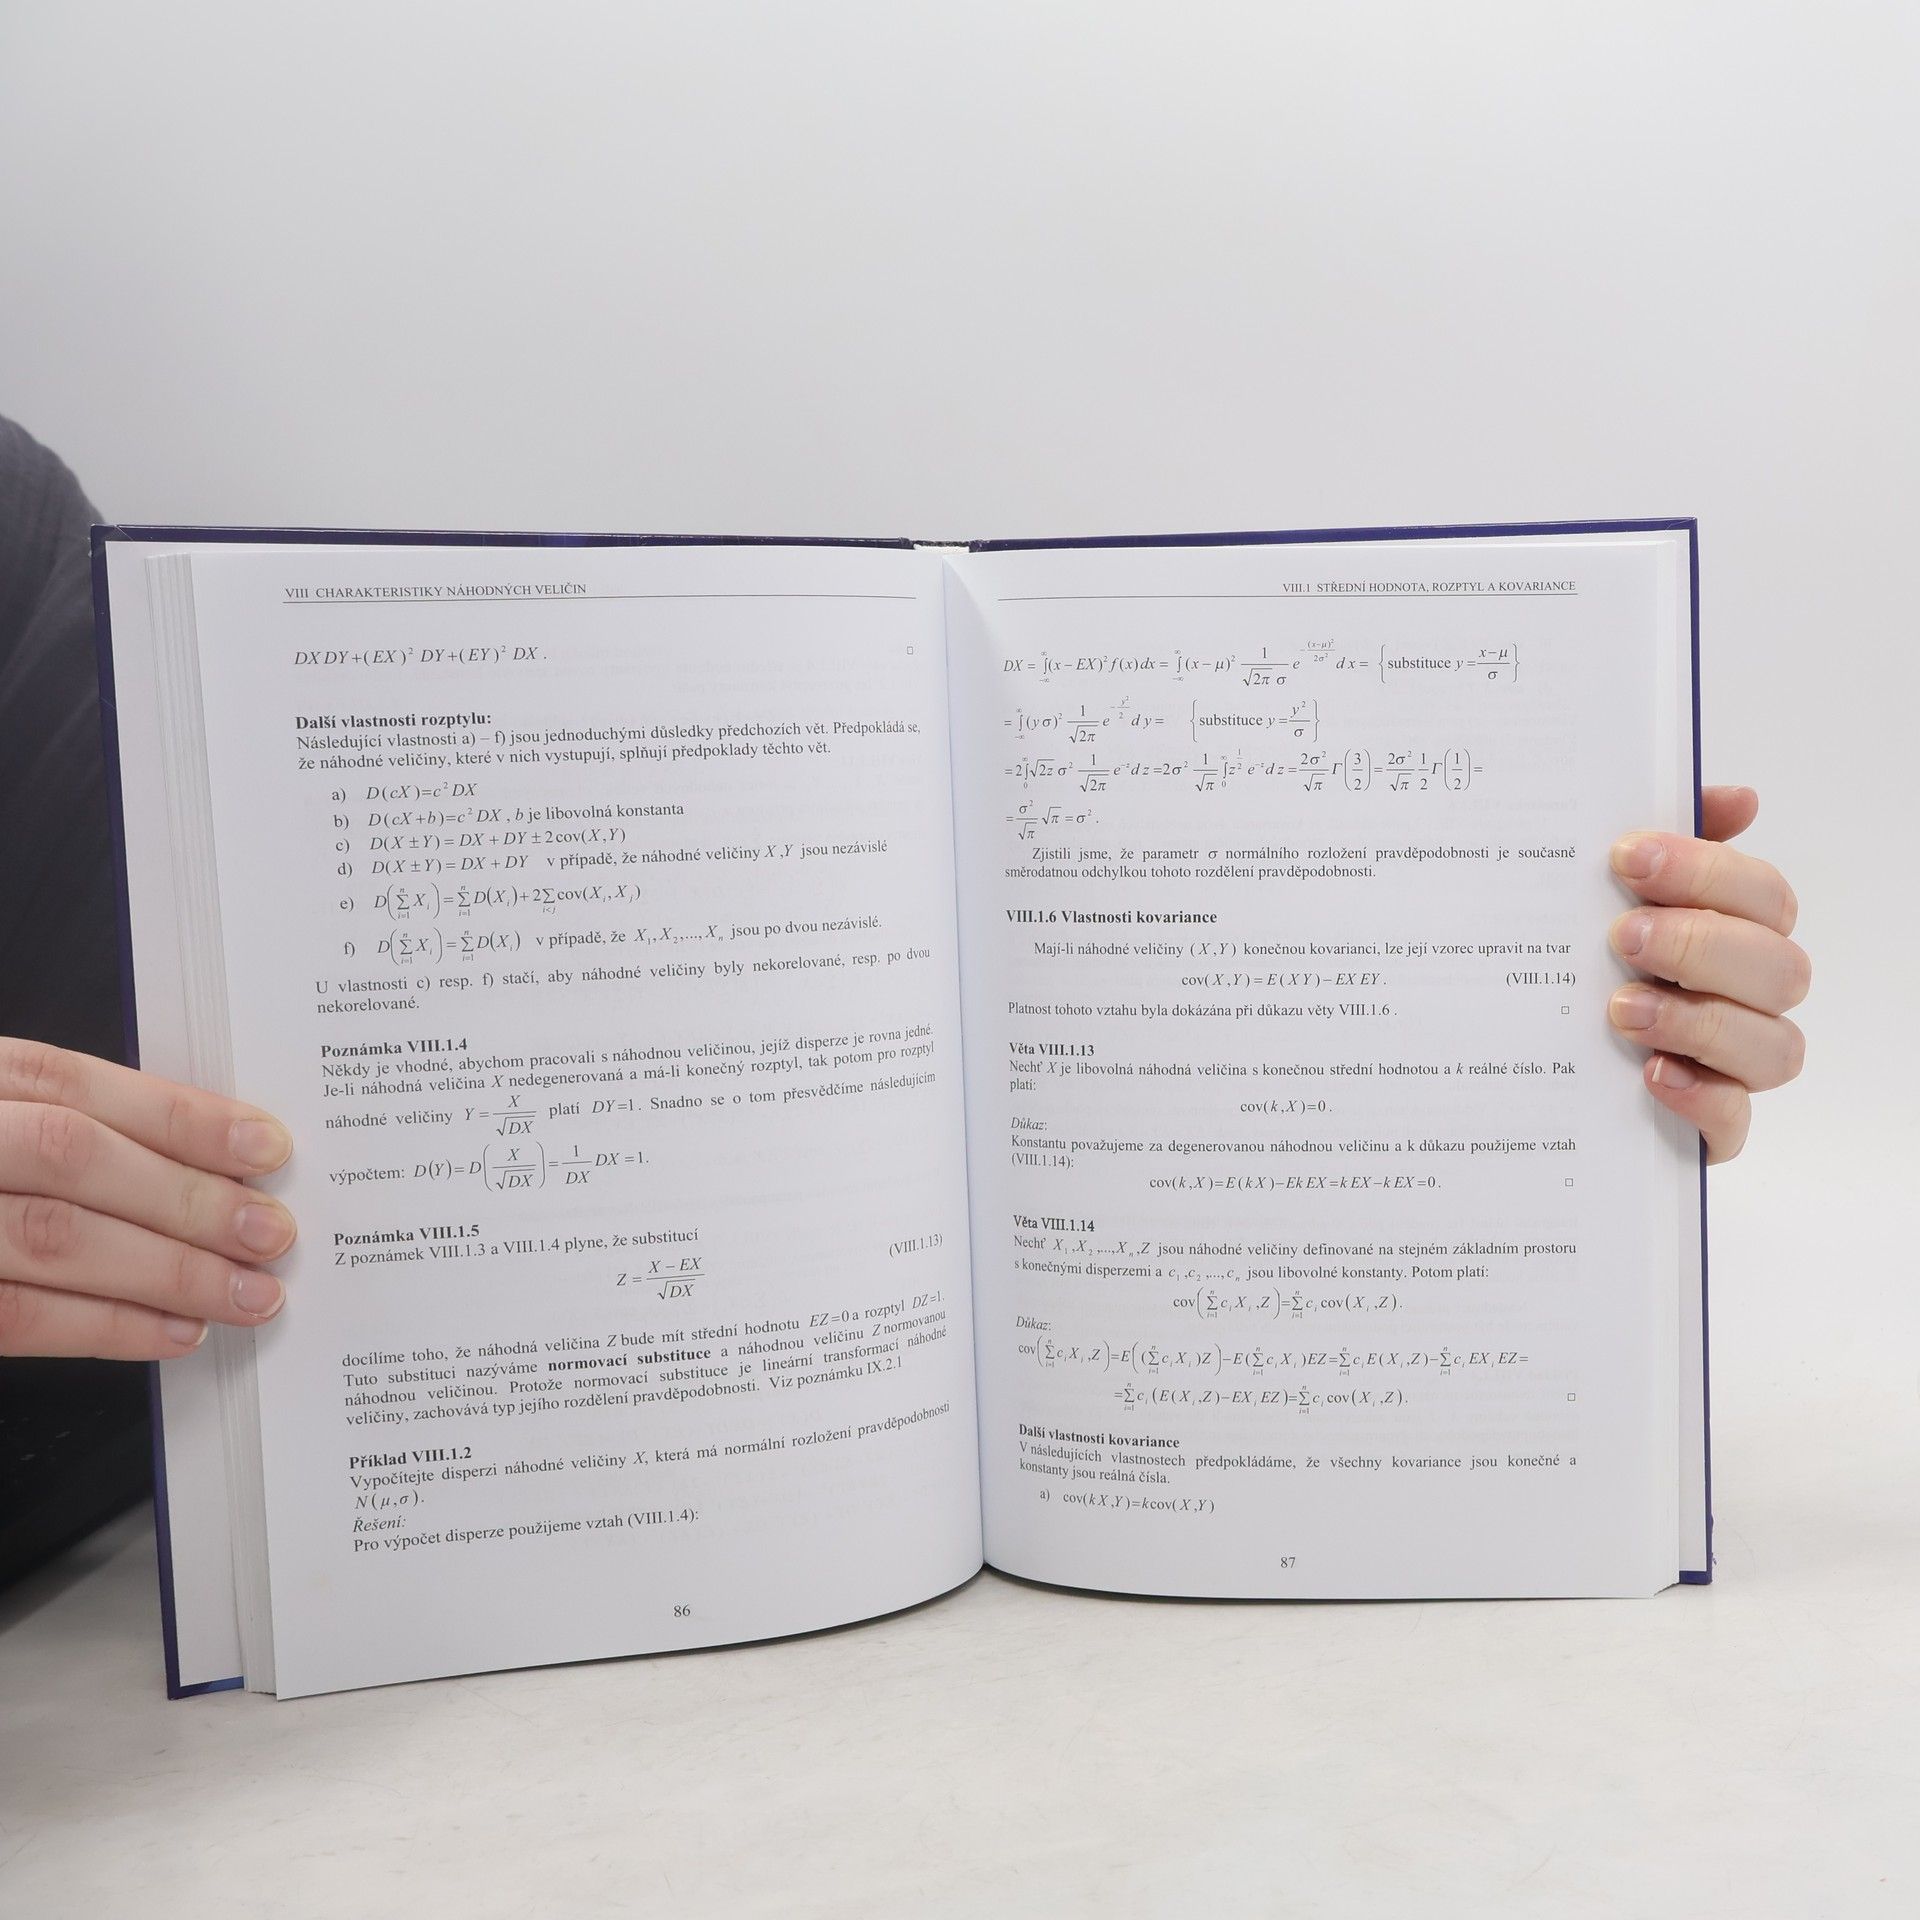 VIII CHARAKTERISTIKY NÁHODNÝCH VELIČIN
DX DY +( EX )² DY +( EY )² DX . □
Další vlastnosti rozptylu:
Následující vlastnosti a) – f) jsou jednoduchými důsledky předchozích vět. Předpokládá se,
že náhodné veličiny, které v nich vystupují, splňují předpoklady těchto vět.
a) D(cX)=c² DX
b) D(cX+b)=c² DX , b je libovolná konstanta
c) D(X ± Y) = DX + DY ± 2cov(X,Y)
d) D(X ± Y) = DX + DY v případě, že náhodné veličiny X ,Y jsou nezávislé
e) D(∑_{i=1}^{n} X_i) = ∑_{i=1}^{n} D(X_i) + 2∑_{i<j} cov(X_i, X_j)
f) D(∑_{i=1}^{n} X_i) = ∑_{i=1}^{n} D(X_i) v případě, že X₁, X₂,..., X_n jsou po dvou nezávislé.
U vlastnosti c) resp. f) stačí, aby náhodné veličiny byly nekorelované, resp. po dvou
nekorelované.
Poznámka VIII.1.4
Někdy je vhodné, abychom pracovali s náhodnou veličinou, jejíž disperze je rovna jedné.
Je-li náhodná veličina X nedegenerovaná a má-li konečný rozptyl, tak potom pro rozptyl
náhodné veličiny Y = X/√DX platí DY=1. Snadno se o tom přesvědčíme následujícím
výpočtem: D(Y) = D(X/√DX) = 1/DX DX = 1.
Poznámka VIII.1.5
Z poznámek VIII.1.3 a VIII.1.4 plyne, že substitucí
Z = (X − EX)/√DX (VIII.1.13)
docílíme toho, že náhodná veličina Z bude mít střední hodnotu EZ=0 a rozptyl DZ=1.
Tuto substituci nazýváme normovací substituce a náhodnou veličinu Z normovanou
náhodnou veličinou. Protože normovací substituce je lineární transformací náhodné
veličiny, zachovává typ jejího rozdělení pravděpodobnosti. Viz poznámku IX.2.1
Příklad VIII.1.2
Vypočítejte disperzi náhodné veličiny X, která má normální rozložení pravděpodobnosti
N(μ,σ).
Řešení:
Pro výpočet disperze použijeme vztah (VIII.1.4):
86
VIII.1 STŘEDNÍ HODNOTA, ROZPTYL A KOVARIANCE
DX = ∫_{−∞}^{∞} (x − EX)² f(x)dx = ∫_{−∞}^{∞} (x − μ)² 1/(√2π σ) e^{−(x−μ)²/2σ²} dx = {substituce y = (x−μ)/σ}
= ∫_{−∞}^{∞} (yσ)² 1/√2π e^{−y²/2} dy = {substituce y = y²/σ}
= 2∫_{0}^{∞} √2z σ² 1/√2π e^{−z} dz = 2σ² 1/√π ∫_{0}^{∞} z^{1/2} e^{−z} dz = 2σ²/√π Γ(3/2) = 2σ²/√π 1/2 Γ(1/2) =
= σ²/√π √π = σ² .
Zjistili jsme, že parametr σ normálního rozložení pravděpodobnosti je současně
směrodatnou odchylkou tohoto rozdělení pravděpodobnosti.
VIII.1.6 Vlastnosti kovariance
Mají-li náhodné veličiny ( X ,Y ) konečnou kovarianci, lze její vzorec upravit na tvar
cov( X ,Y ) = E ( X Y ) − EX EY . (VIII.1.14)
Platnost tohoto vztahu byla dokázána při důkazu věty VIII.1.6 . □
Věta VIII.1.13
Nechť X je libovolná náhodná veličina s konečnou střední hodnotou a k reálné číslo. Pak
platí:
cov( k , X )=0 .
Důkaz:
Konstantu považujeme za degenerovanou náhodnou veličinu a k důkazu použijeme vztah
(VIII.1.14):
cov( k , X )=E ( kX )−Ek EX =k EX −k EX =0 . □
Věta VIII.1.14
Nechť X₁ ,X₂ ,...,X_n ,Z jsou náhodné veličiny definované na stejném základním prostoru
s konečnými disperzemi a c₁ ,c₂ ,..., c_n jsou libovolné konstanty. Potom platí:
cov(∑_{i=1}^{n} c_i X_i ,Z) = ∑_{i=1}^{n} c_i cov( X_i ,Z ).
Důkaz:
cov(∑_{i=1}^{n} c_i X_i ,Z) = E((∑_{i=1}^{n} c_i X_i )Z) − E(∑_{i=1}^{n} c_i X_i )EZ = ∑_{i=1}^{n} c_i E( X_i ,Z) − ∑_{i=1}^{n} c_i EX_i EZ =
= ∑_{i=1}^{n} c_i (E( X_i ,Z) − EX_i EZ ) = ∑_{i=1}^{n} c_i cov( X_i ,Z ). □
Další vlastnosti kovariance
V následujících vlastnostech předpokládáme, že všechny kovariance jsou konečné a
konstanty jsou reálná čísla.
a) cov( k X ,Y )=kcov( X ,Y )
87